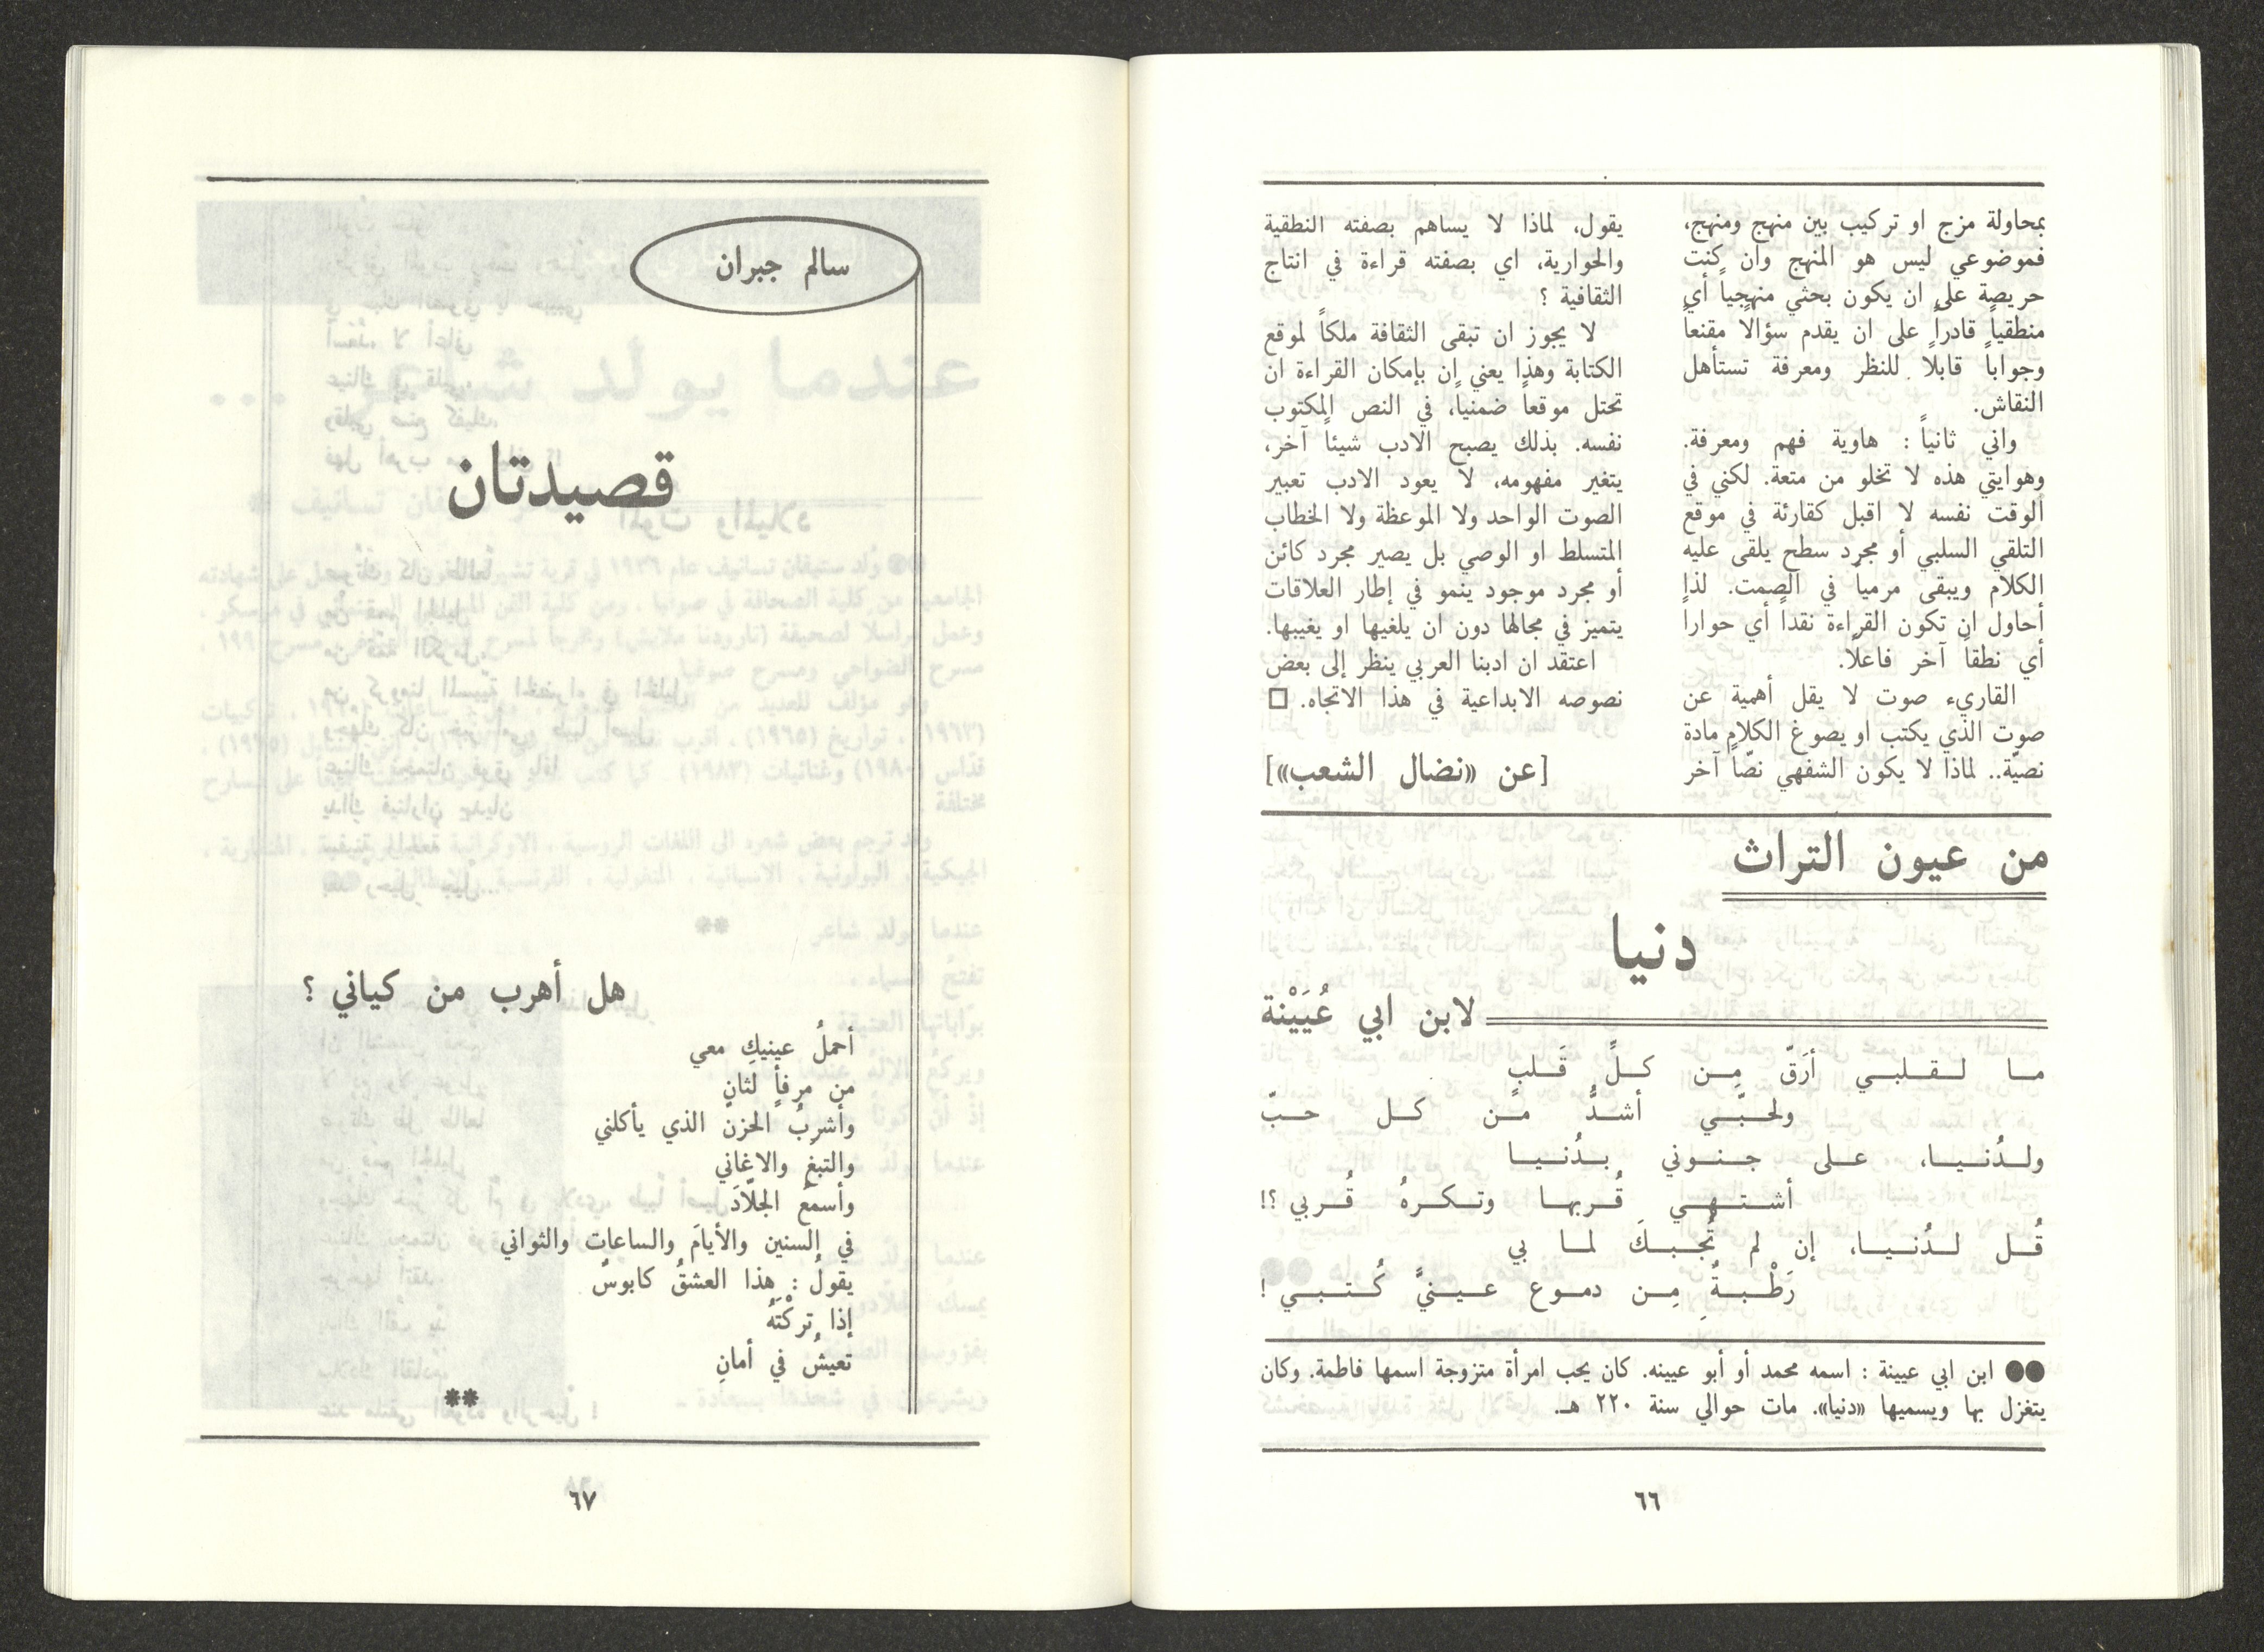 بمحاولة مزج او تركيب بين منهج ومنهج،
فموضوعي ليس هو المنهج وان كنت
حريصة على ان يكون بحثي منهجياً أي
منطقياً قادراً على ان يقدم سؤالاً مقنعاً
وجواباً قابلاً للنظر ومعرفة تستأهل
النقاش.
واني ثانياً : هاوية فهم ومعرفة.
وهوايتي هذه لا تخلو من متعة. لكني في
الوقت نفسه لا اقبل كقارئة في موقع
التلقي السلبي أو مجرد سطح يلقى عليه
الكلام ويبقى مرمياً في الصمت. لذا
أحاول ان تكون القراءة نقداً أي حواراً
أي نطقاً آخر فاعلاً.
القاريء صوت لا يقل أهمية عن
صوت الذي يكتب او يصوغ الكلام مادة
نصيّة.. لماذا لا يكون الشفهي نصّاً آخر
يقول، لماذا لا يساهم بصفته النطقية
والحوارية، اي بصفته قراءة في انتاج
الثقافية ؟
لا يجوز ان تبقى الثقافة ملكاً لموقع
الكتابة وهذا يعني ان بإمكان القراءة ان
تحتل موقعاً ضمنياً، في النص المكتوب
نفسه. بذلك يصبح الادب شيئاً آخر،
يتغير مفهومه، لا يعود الادب تعبير
الصوت الواحد ولا الموعظة ولا الخطاب
المتسلط او الوصي بل يصير مجرد كائن
أو مجرد موجود ينمو في إطار العلاقات
يتميز في مجالها دون ان يلغيها او يغيبها.
اعتقد ان ادبنا العربي ينظر إلى بعض
نصوصه الابداعية في هذا الاتجاه. □
[عن «نضال الشعب»]
من عيون التراث
دنيا
لابن ابي عُيَيْنة
ما لـقـلبـي أرَقّ مِـن كـلِّ قَـلبٍ
ولحبّـي أشـدُّ مـن كـل حـبّ
ولـدُنـيـا، عـلى جـنـوني بـدُنـيـا
أشـتـهـي قُـربهـا وتـكـرهُ قُـربي ؟!
قُـل لـدُنـيـا، إن لم تُجـبـكَ لمـا بي
رَطْـبـةٌ مِـن دمـوع عـيـنيَّ كُـتـبـي !
●● ابن ابي عيينة : اسمه محمد أو أبو عيينه. كان يحب امرأة متزوجة اسمها فاطمة. وكان
يتغزل بها ويسميها «دنيا». مات حوالي سنة ٢٢٠ هـ.
٦٦
سالم جبران
قصيدتان
هل أهرب من كياني ؟
أحملُ عينيكِ معي
من مرفأٍ لثانٍ
وأشربُ الحزن الذي يأكلني
والتبغِ والاغاني
وأسمعُ الجلّادَ
في السنين والأيامَ والساعات والثواني
يقولُ : هذا العشقُ كابوسٌ
إذا تركْتَهُ
تعيشُ في أمانِ
**
٦٧